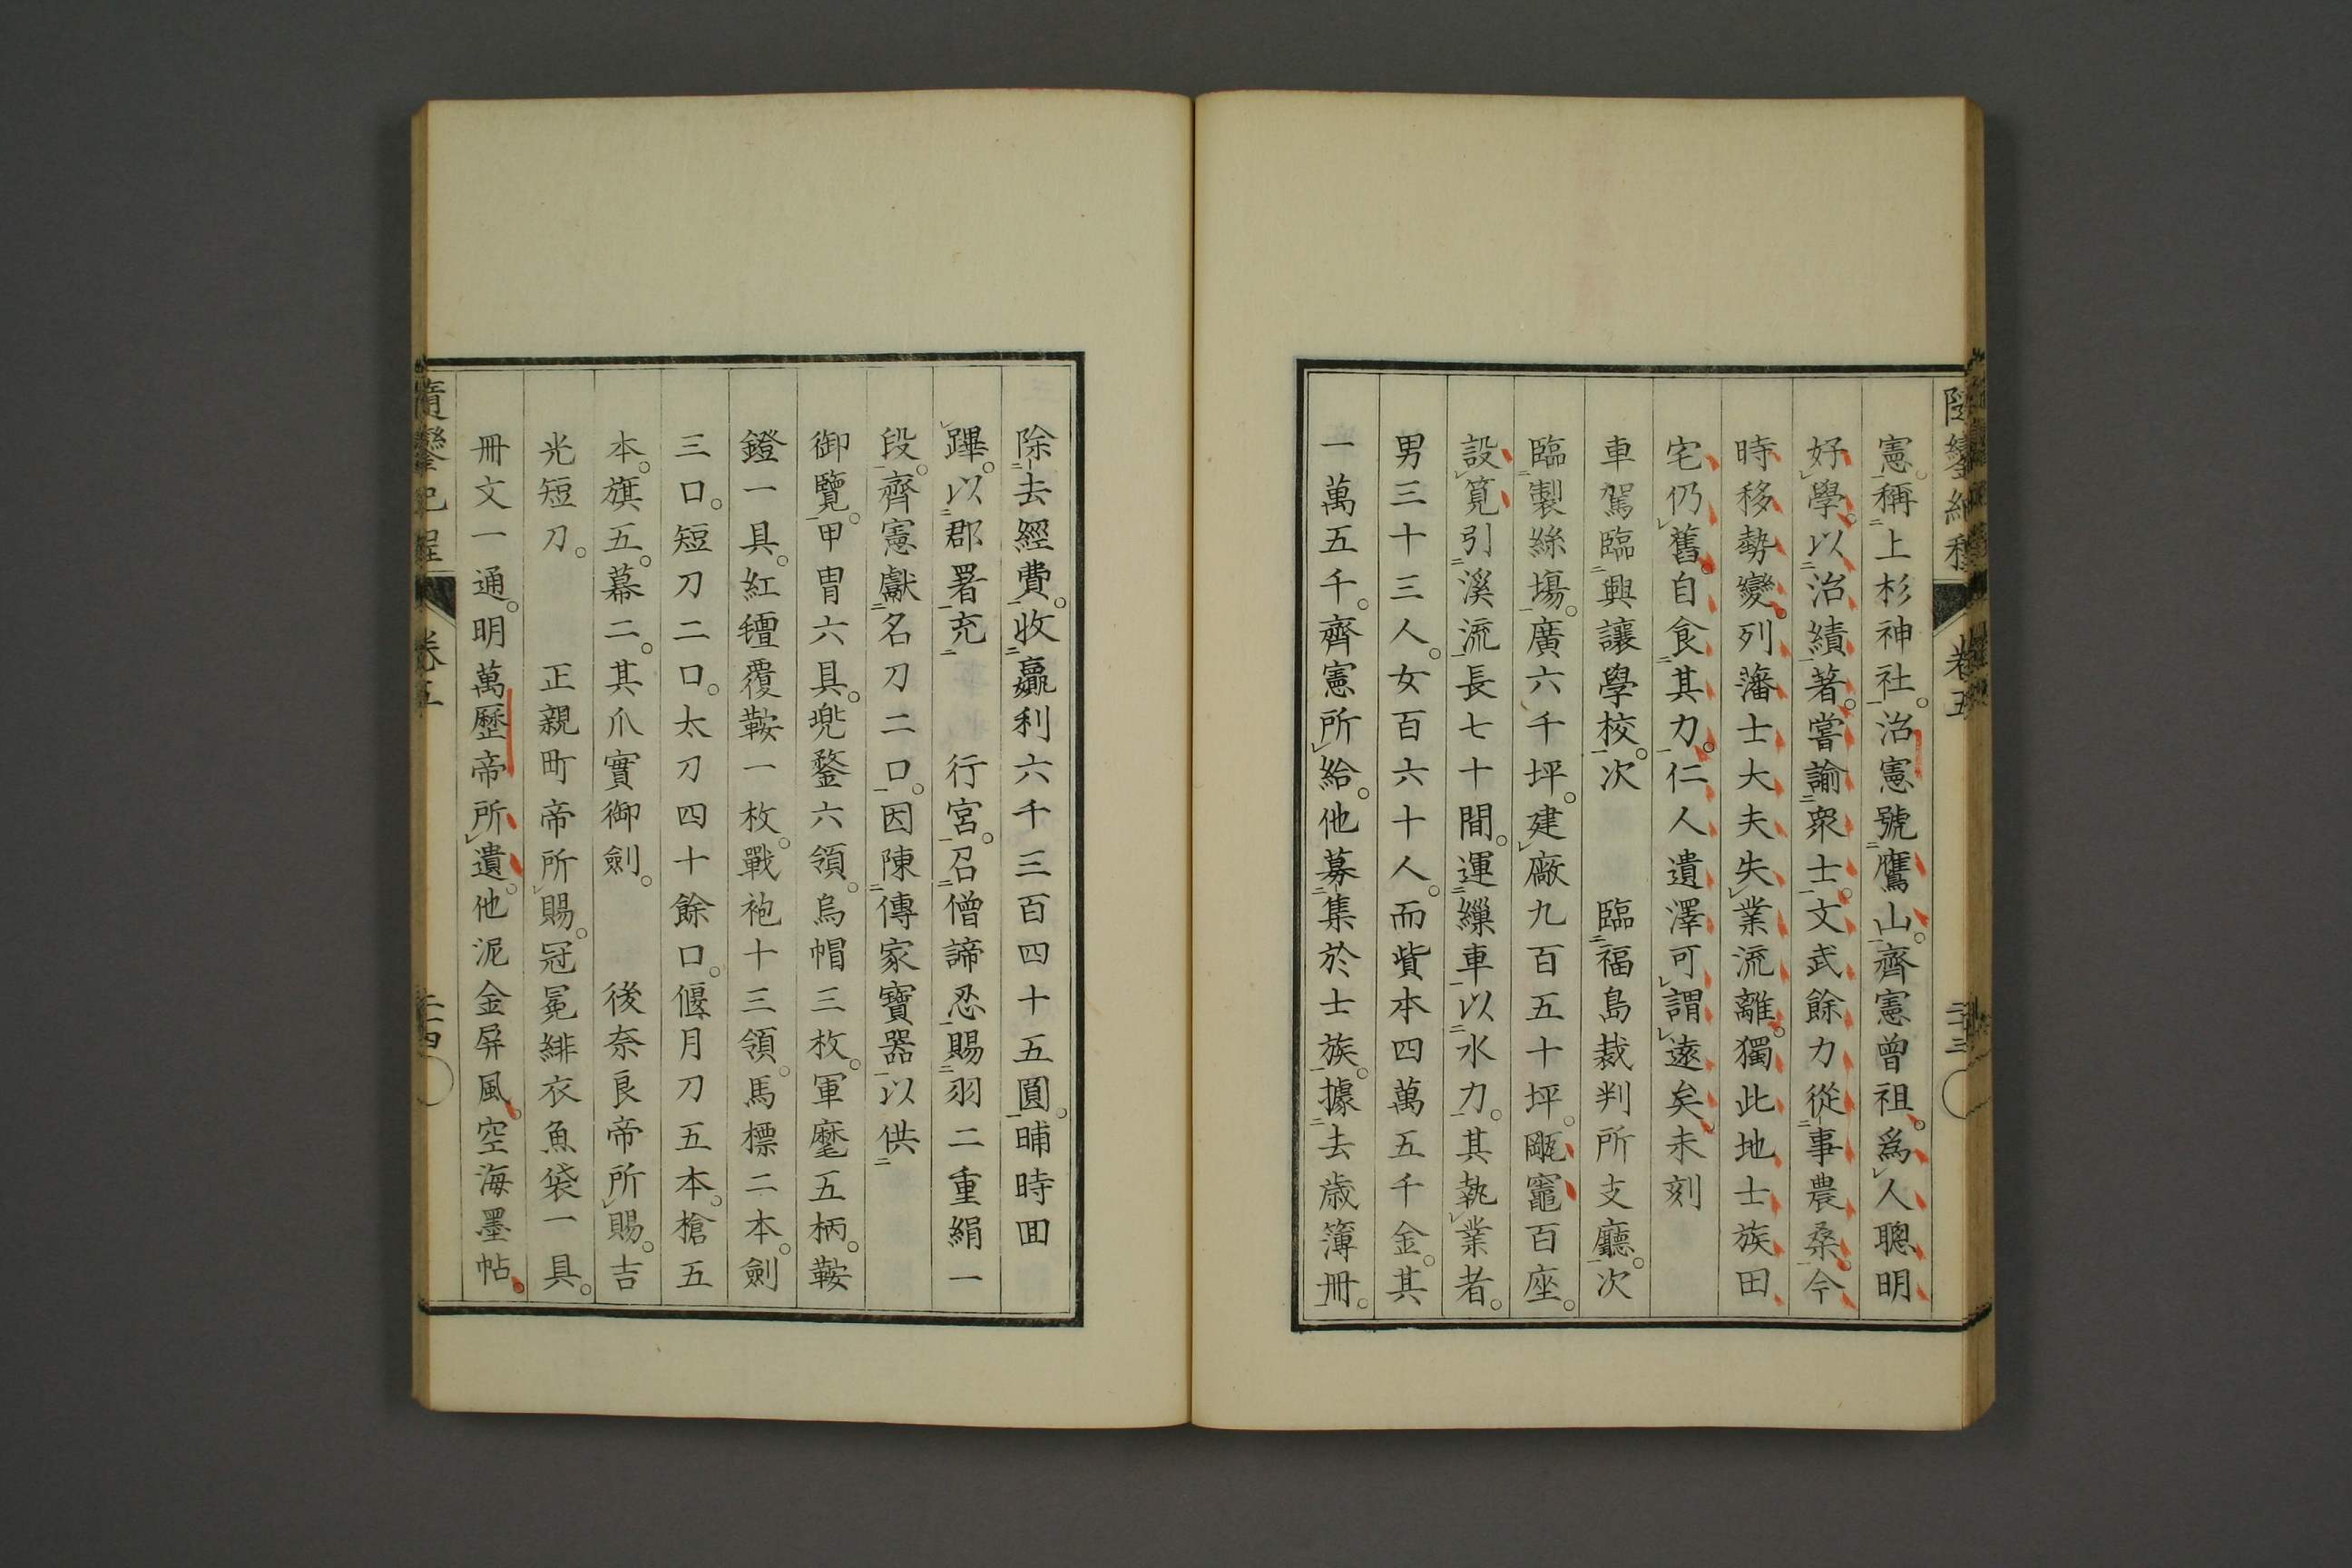 憲。稱上杉神社。治憲號鷹山。齊憲曾祖。爲人聰明
好學。以治績著。嘗諭衆士。文武餘力從事農桑。今
時移勢變。列藩士大夫失業流離。獨此地士族田
宅仍舊。自食其力。仁人遺澤可謂遠矣。未刻
車駕臨興讓學校。次　臨福島裁判所支廳。次
臨製絲場。廣六千坪。建廠九百五十坪。甌竈百座。
設筧引溪流長七十間。運繅車以水力。其執業者。
男三十三人。女百六十人。而貲本四萬五千金。其
一萬五千。齊憲所給。他募集於士族。據去歲簿冊。
除去經費。收贏利六千三百四十五圓。晡時回
蹕。以郡署充　行宮。召僧諦忍賜羽二重絹一
段。齊憲獻名刀二口。因陳傳家寶器以供
御覽。甲冑六具。兜鍪六領。烏帽三枚。軍麾五柄。鞍
鐙一具。紅氈覆鞍一枚。戰袍十三領。馬標二本。劍
三口。短刀二口。太刀四十餘口。偃月刀五本。槍五
本。旗五。幕二。其爪實御劍。　後奈良帝所賜。吉
光短刀。　正親町帝所賜。冠冕緋衣魚袋一具。
冊文一通。明萬歷帝所遺。他泥金屏風。空海墨帖。
隨鑾紀程　卷五　二十四